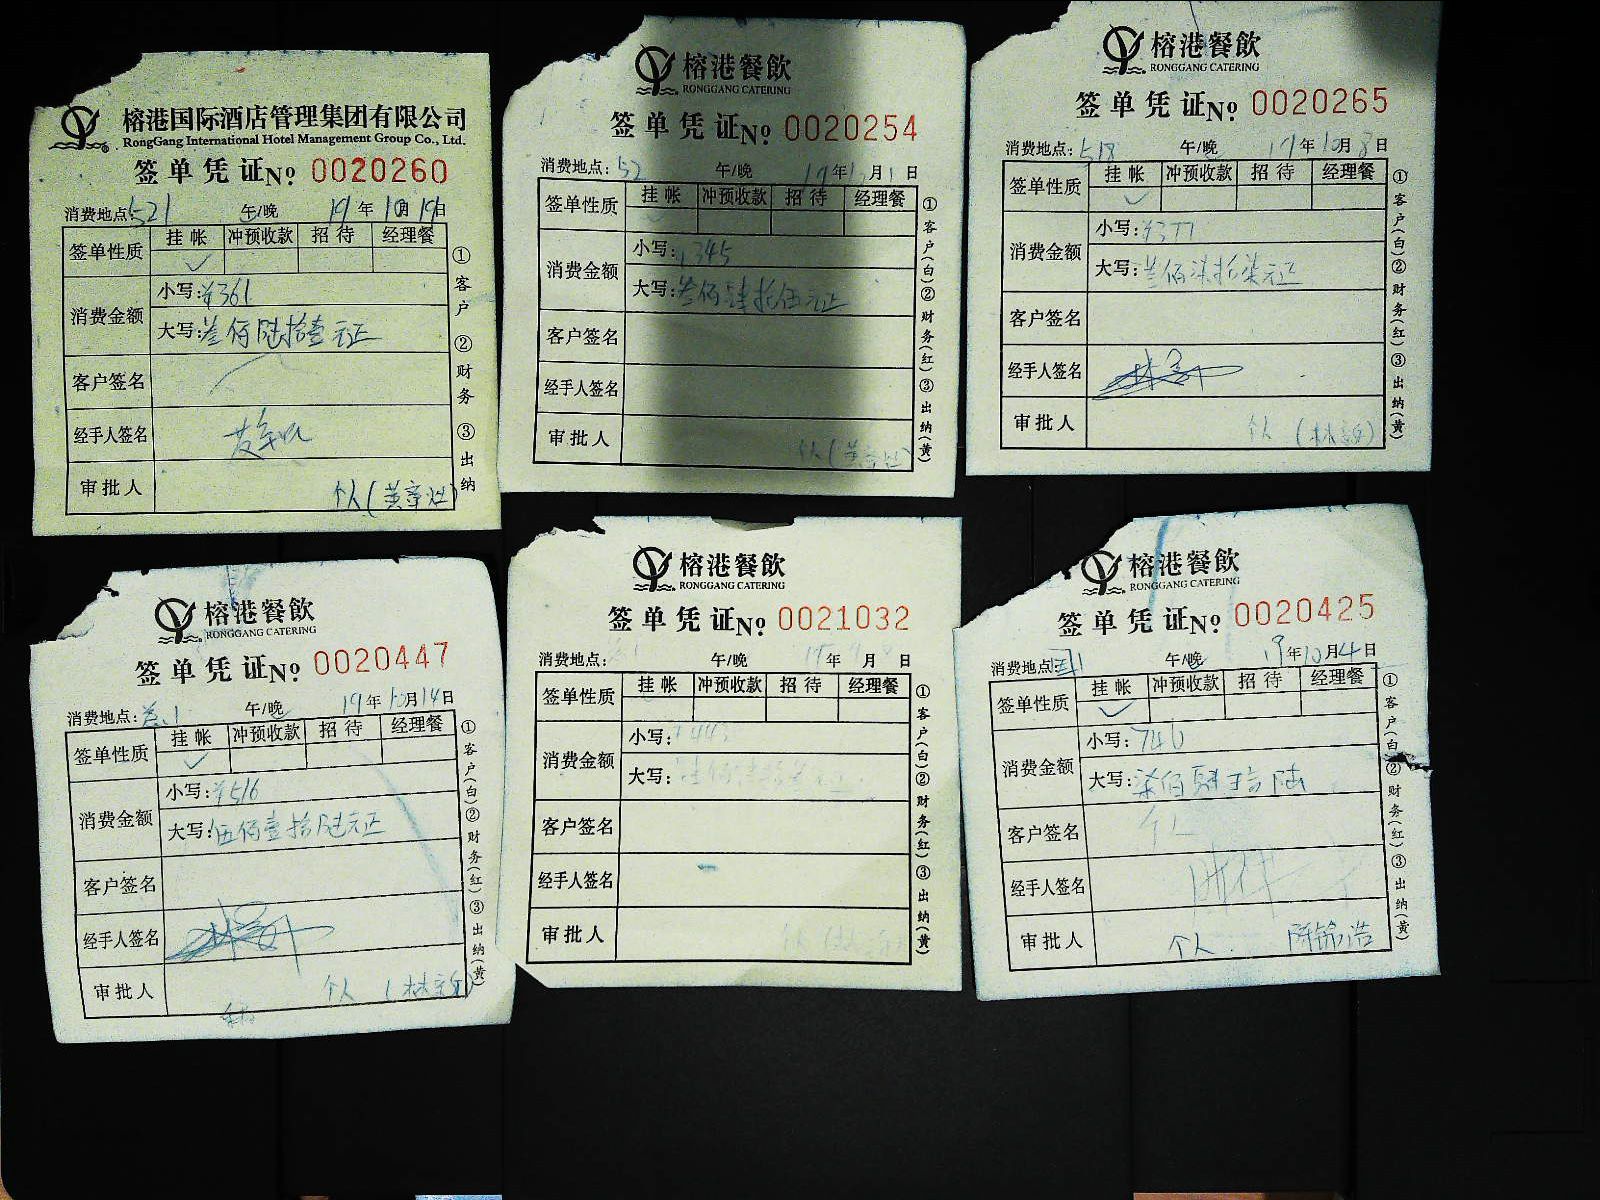 榕港国际酒店管理集团有限公司
RongGang International Hotel Management Group Co., Ltd.
签单凭证No 0020260
消费地点:521 午/晚 19年10月19日
签单性质 挂帐 冲预收款 招待 经理餐
✓
消费金额 小写:¥361
大写:叁佰陆拾壹元正
客户签名
经手人签名
审批人 个人(黄章灶)
①客户 ②财务 ③出纳
榕港餐飲
RONGGANG CATERING
签单凭证No 0020254
消费地点:52 午/晚 19年 月 日
签单性质 挂帐 冲预收款 招待 经理餐
消费金额 小写: 345
大写:叁佰肆拾伍元正
客户签名
经手人签名
审批人 个人
①客户(白)②财务(红)③出纳(黄)
榕港餐飲
RONGGANG CATERING
签单凭证No 0020265
消费地点:518 午/晚 19年10月8日
签单性质 挂帐 冲预收款 招待 经理餐
✓
消费金额 小写:¥377
大写:叁佰柒拾柒元正
客户签名
经手人签名
审批人 个人
①客户(白)②财务(红)③出纳(黄)
榕港餐飲
RONGGANG CATERING
签单凭证No 0020447
消费地点: 午/晚 19年10月14日
签单性质 挂帐 冲预收款 招待 经理餐
✓
消费金额 小写:¥516
大写:伍佰壹拾陆元正
客户签名
经手人签名
审批人 个人
①客户(白)②财务(红)③出纳(黄)
榕港餐飲
RONGGANG CATERING
签单凭证No 0021032
消费地点: 午/晚 19年 月 日
签单性质 挂帐 冲预收款 招待 经理餐
消费金额 小写: 443
大写:
客户签名
经手人签名
审批人
①客户(白)②财务(红)③出纳(黄)
榕港餐飲
RONGGANG CATERING
签单凭证No 0020425
消费地点: 午/晚 19年10月4日
签单性质 挂帐 冲预收款 招待 经理餐
✓
消费金额 小写:746
大写:柒佰肆拾陆
客户签名 个人
经手人签名
审批人 个人 陈锦浩
①客户(白)②财务(红)③出纳(黄)